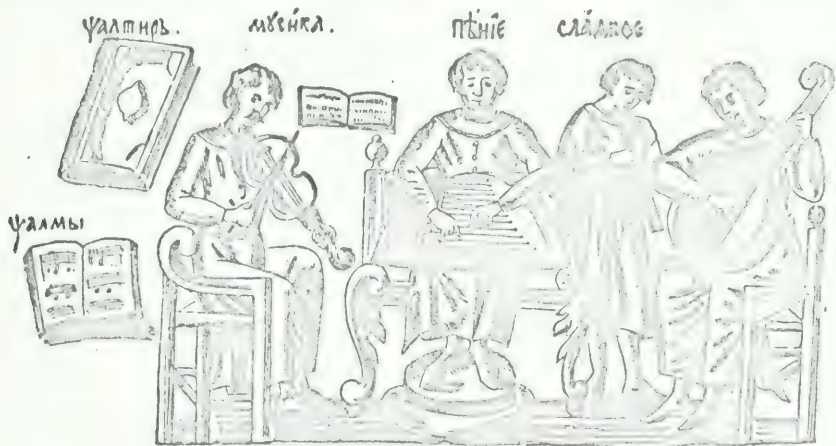 ѱалтирь. мусика. пѣніе сладкое
ѱалмы